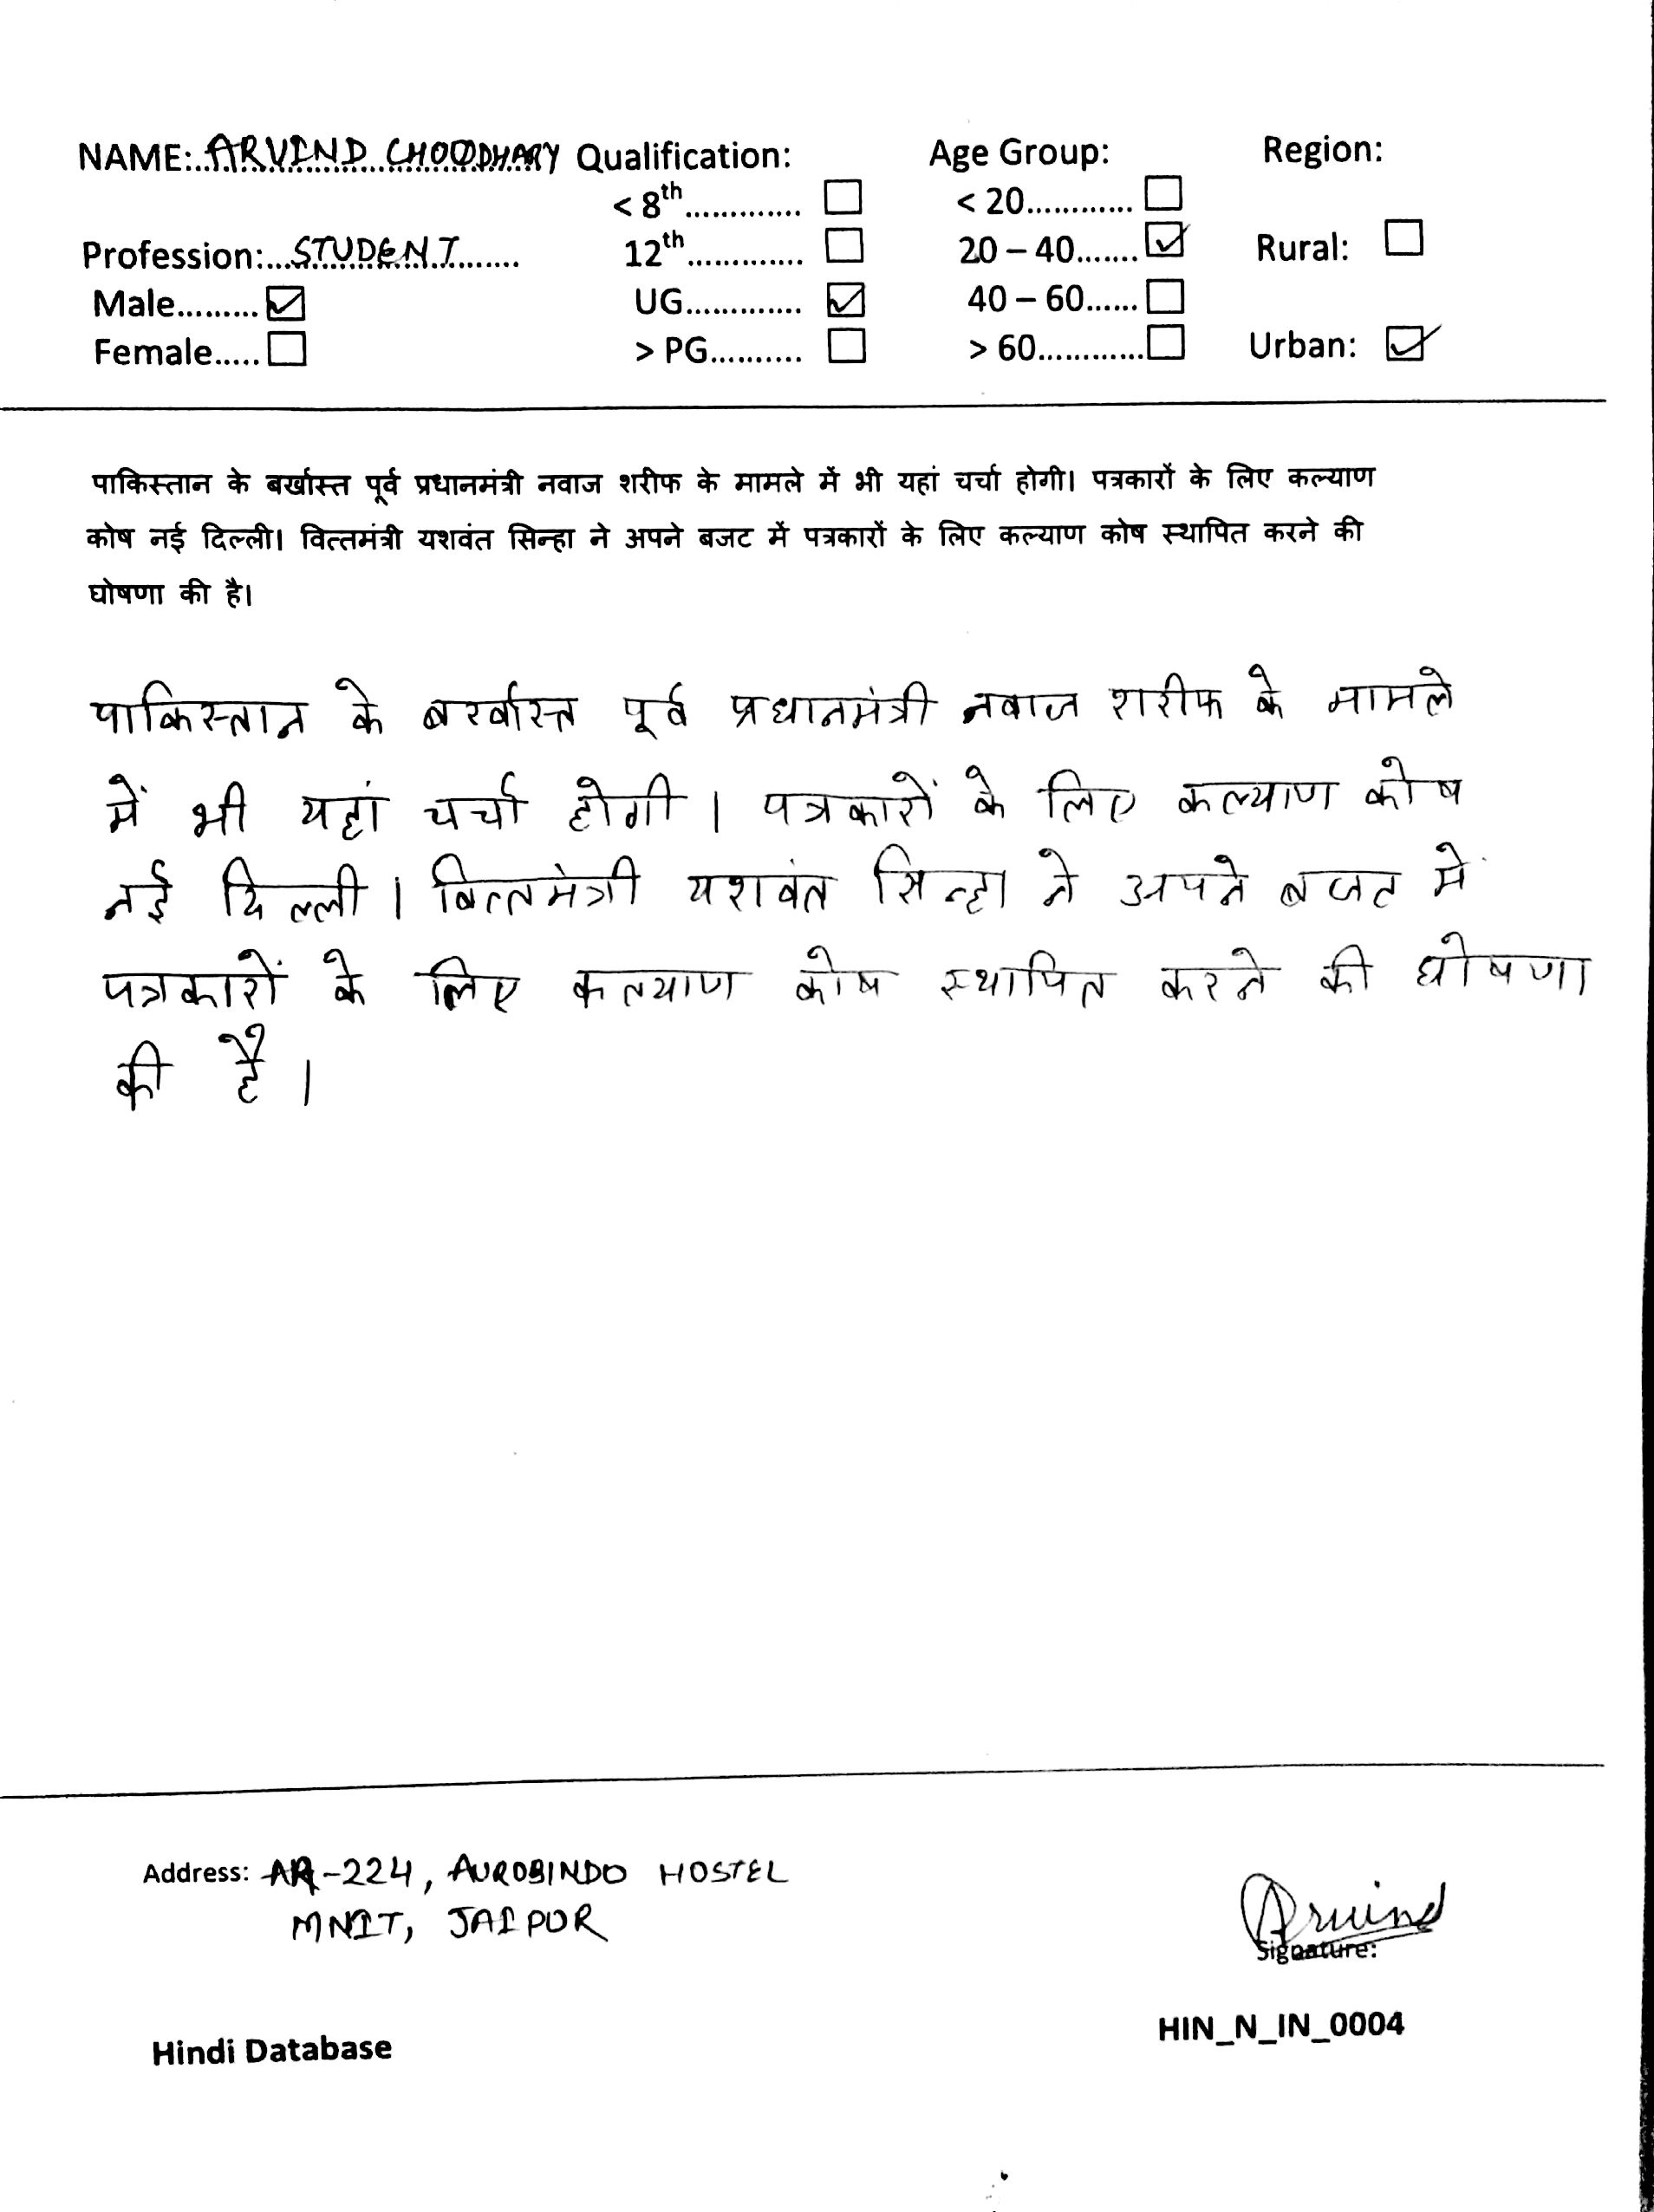 NAME: ARVIND CHOODHARY Qualification: Age Group: Region:
< 8th............. < 20............
Profession:...STUDENT........ 12th............. 20 – 40....... Rural:
Male......... UG............. 40 – 60......
Female..... > PG.......... > 60............ Urban:
पाकिस्तान के बर्खास्त पूर्व प्रधानमंत्री नवाज शरीफ के मामले में भी यहां चर्चा होगी। पत्रकारों के लिए कल्याण
कोष नई दिल्ली। वित्तमंत्री यशवंत सिन्हा ने अपने बजट में पत्रकारों के लिए कल्याण कोष स्थापित करने की
घोषणा की है।
पाकिस्तान के बर्खास्त पूर्व प्रधानमंत्री नवाज शरीफ के मामले
में भी यहां चर्चा होगी। पत्रकारों के लिए कल्याण कोष
नई दिल्ली। वित्तमंत्री यशवंत सिन्हा ने अपने बजट में
पत्रकारों के लिए कल्याण कोष स्थापित करने की घोषणा
की है।
Address: AR-224, AUROBINDO HOSTEL
MNIT, JAIPUR
Arvind
Signature:
HIN_N_IN_0004
Hindi Database